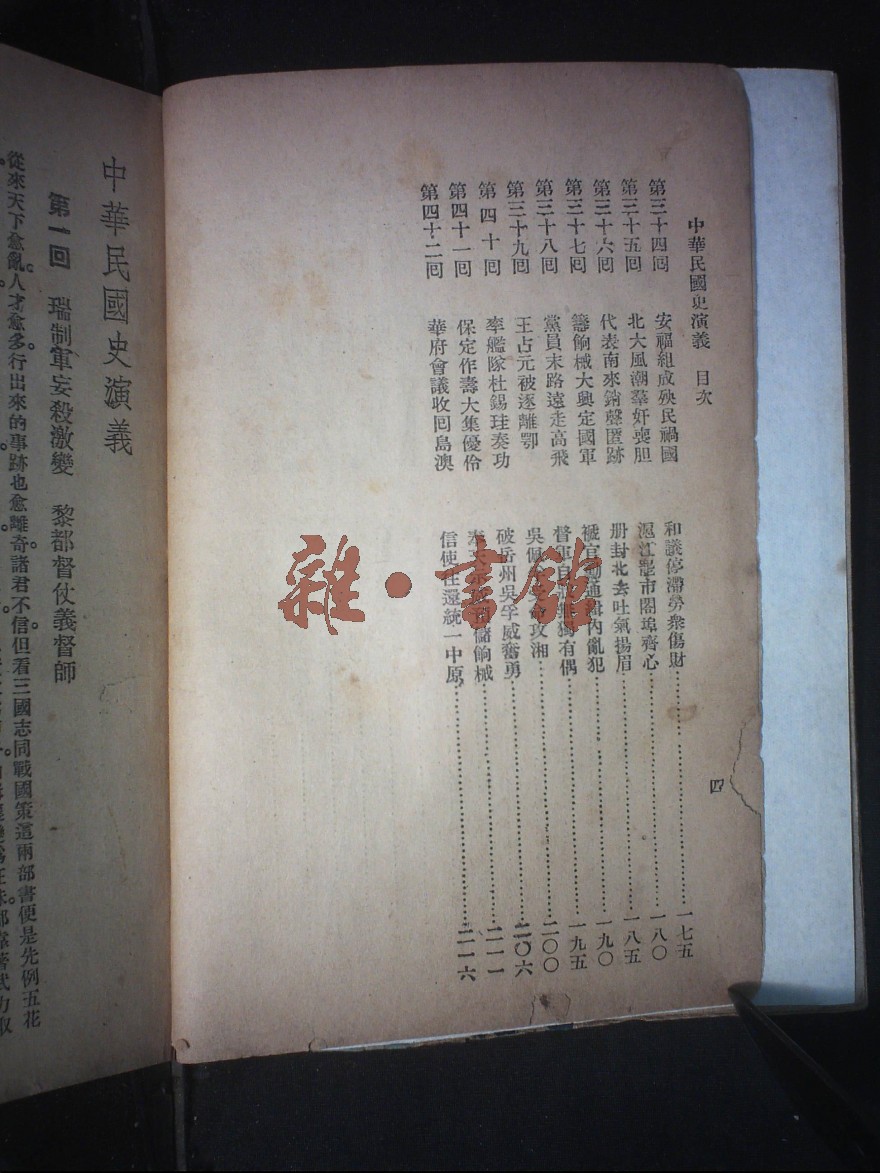 中華民國史演義　目次
第三十四囘　安福組成殃民禍國　和議停滯勞衆傷財……一七五
第三十五囘　北大風潮羣奸喪胆　滬江罷市閤埠齊心……一八〇
第三十六囘　代表南來銷聲匿跡　册封北去吐氣揚眉……一八五
第三十七囘　籌餉械大興定國軍　褫官通緝內亂犯……一九〇
第三十八囘　黨員末路遠走高飛　督軍自獨有偶……一九五
第三十九囘　王占元被逐離鄂　吳佩命攻湘……二〇〇
第四十囘　率艦隊杜錫珪奏功　破岳州吳孚威奮勇……二〇六
第四十一囘　保定作壽大集優伶　奉天儲餉械……二一一
第四十二囘　華府會議收囘島澳　信使往還統一中原……二一六
四
雜·書館
中華民國史演義
第一回　瑞制軍妄殺激變　黎都督仗義督師
從來天下愈亂。人才愈多。行出來的事跡也愈離奇。諸君不信。但看三國志同戰國策這兩部書。便是先例。五花